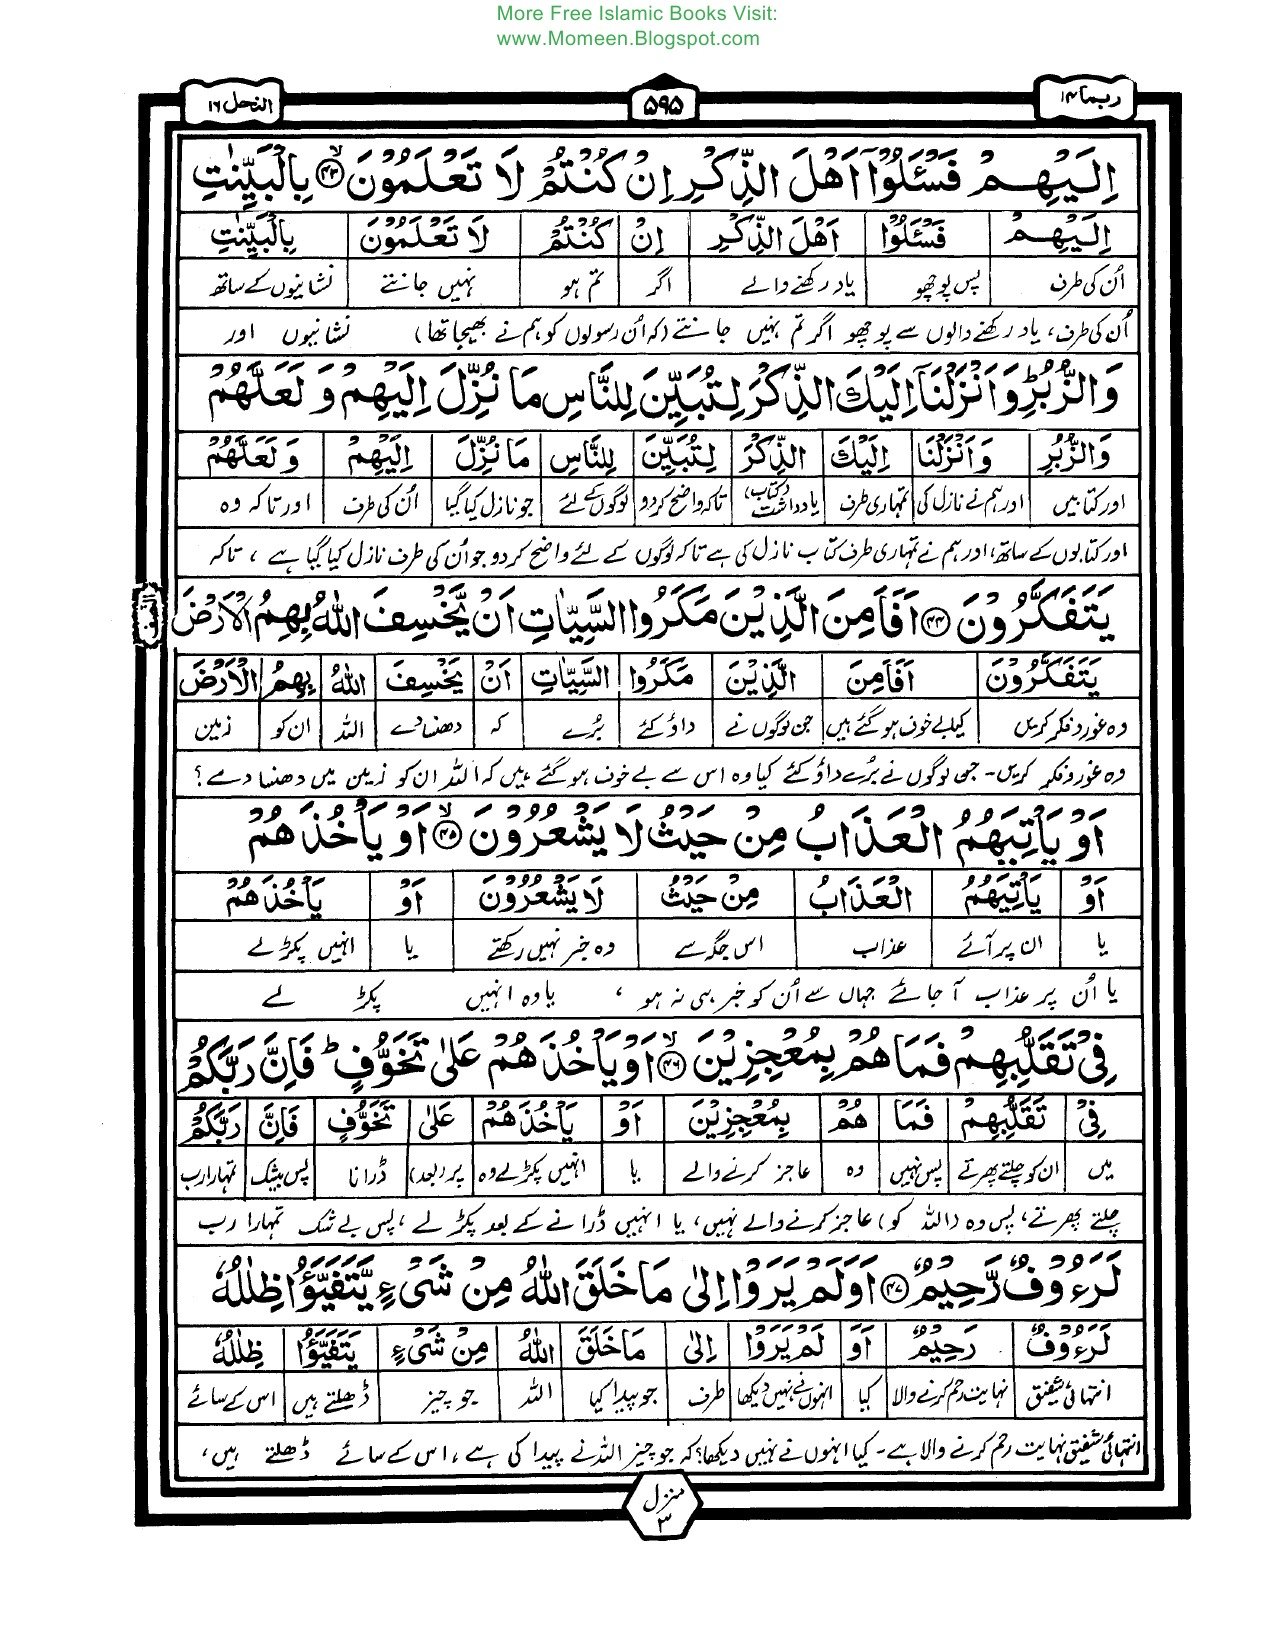 More Free Islamic Books Visit:
www.Momeen.Blogspot.com
ربما ۱۴
۵۹۵
النحل ۱۶
اِلَيْهِمْ فَسْـَٔلُوْٓا اَهْلَ الذِّكْرِ اِنْ كُنْتُمْ لَا تَعْلَمُوْنَ ۙ﴿۴۳﴾ بِالْبَيِّنٰتِ
اِلَيْهِمْ فَسْـَٔلُوْٓا اَهْلَ الذِّكْرِ اِنْ كُنْتُمْ لَا تَعْلَمُوْنَ بِالْبَيِّنٰتِ
اُن کی طرف پس پوچھو یاد رکھنے والے اگر تم ہو نہیں جانتے نشانیوں کے ساتھ
اُن کی طرف، یاد رکھنے والوں سے پوچھو اگر تم نہیں جانتے (کہ اُن رسولوں کو ہم نے بھیجا تھا) نشانیوں اور
وَالزُّبُرِ ؕ وَاَنْزَلْنَآ اِلَيْكَ الذِّكْرَ لِتُبَيِّنَ لِلنَّاسِ مَا نُزِّلَ اِلَيْهِمْ وَ لَعَلَّهُمْ
وَالزُّبُرِ وَاَنْزَلْنَا اِلَيْكَ الذِّكْرَ لِتُبَيِّنَ لِلنَّاسِ مَا نُزِّلَ اِلَيْهِمْ وَ لَعَلَّهُمْ
اور کتابیں اور ہم نے نازل کی تمہاری طرف یادداشت (کتاب) تاکہ واضح کر دو لوگوں کے لئے جو نازل کیا گیا اُن کی طرف اور تاکہ وہ
اور کتابوں کے ساتھ، اور ہم نے تمہاری طرف کتاب نازل کی ہے تاکہ لوگوں کے لئے واضح کر دو جو اُن کی طرف نازل کیا گیا ہے ، تاکہ
يَتَفَكَّرُوْنَ ﴿۴۴﴾ اَفَاَمِنَ الَّذِيْنَ مَكَرُوا السَّيِّاٰتِ اَنْ يَّخْسِفَ اللّٰهُ بِهِمُ الْاَرْضَ
النصف
يَتَفَكَّرُوْنَ اَفَاَمِنَ الَّذِيْنَ مَكَرُوا السَّيِّاٰتِ اَنْ يَّخْسِفَ اللّٰهُ بِهِمُ الْاَرْضَ
وہ غور و فکر کریں کیا بے خوف ہو گئے ہیں جن لوگوں نے داؤ کئے بُرے کہ دھنسا دے اللہ ان کو زمین
وہ غور و فکر کریں۔ جن لوگوں نے بُرے داؤ کئے کیا وہ اس سے بے خوف ہو گئے ہیں کہ اللہ ان کو زمین میں دھنسا دے ؟
اَوْ يَاْتِيَهُمُ الْعَذَابُ مِنْ حَيْثُ لَا يَشْعُرُوْنَ ۙ﴿۴۵﴾ اَوْ يَاْخُذَهُمْ
اَوْ يَاْتِيَهُمُ الْعَذَابُ مِنْ حَيْثُ لَا يَشْعُرُوْنَ اَوْ يَاْخُذَهُمْ
یا ان پر آئے عذاب اس جگہ سے وہ خبر نہیں رکھتے یا انہیں پکڑ لے
یا اُن پر عذاب آ جائے جہاں سے اُن کو خبر ہی نہ ہو ، یا وہ انہیں پکڑ لے
فِيْ تَقَلُّبِهِمْ فَمَا هُمْ بِمُعْجِزِيْنَ ۙ﴿۴۶﴾ اَوْ يَاْخُذَهُمْ عَلٰى تَخَوُّفٍ ؕ فَاِنَّ رَبَّكُمْ
فِيْ تَقَلُّبِهِمْ فَمَا هُمْ بِمُعْجِزِيْنَ اَوْ يَاْخُذَهُمْ عَلٰى تَخَوُّفٍ فَاِنَّ رَبَّكُمْ
میں ان کو چلتے پھرتے پس نہیں وہ عاجز کرنے والے یا انہیں پکڑ لے وہ پر (بعد) ڈرانا پس بیشک تمہارا رب
چلتے پھرتے، پس وہ (اللہ کو) عاجز کرنے والے نہیں، یا انہیں ڈرانے کے بعد پکڑ لے ، پس بے شک تمہارا رب
لَرَءُوْفٌ رَّحِيْمٌ ﴿۴۷﴾ اَوَلَمْ يَرَوْا اِلٰى مَا خَلَقَ اللّٰهُ مِنْ شَيْءٍ يَّتَفَيَّؤُا ظِلٰلُهٗ
لَرَءُوْفٌ رَحِيْمٌ اَوَ لَمْ يَرَوْا اِلٰى مَا خَلَقَ اللّٰهُ مِنْ شَيْءٍ يَتَفَيَّؤُا ظِلٰلُهٗ
انتہائی شفیق نہایت رحم کرنے والا کیا انہوں نے نہیں دیکھا طرف جو پیدا کیا اللہ جو چیز ڈھلتے ہیں اس کے سائے
انتہائی شفیق نہایت رحم کرنے والا ہے۔ کیا انہوں نے نہیں دیکھا؟ کہ جو چیز اللہ نے پیدا کی ہے ، اس کے سائے ڈھلتے ہیں،
منزل ۳